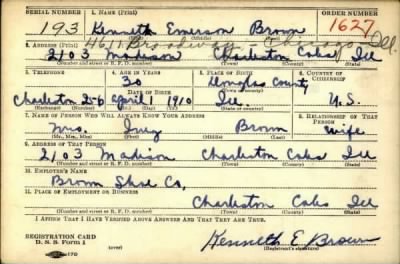 SERIAL NUMBER 1. NAME (Print) ORDER NUMBER
193 Kenneth Emerson Brown 1627
(First) (Middle) (Last)
4611 Broadway - Chicago Ill.
2. ADDRESS (Print)
2103 Madison Charleston Coles Ill
(Number and street or R. F. D. number) (Town) (County) (State)
3. TELEPHONE 4. AGE IN YEARS 5. PLACE OF BIRTH 6. COUNTRY OF CITIZENSHIP
30 Douglas County
DATE OF BIRTH
Charleston 256 April 1910 Ill. U.S.
(Exchange) (No.) (Mo.) (Day) (Yr.) (State or country)
7. NAME OF PERSON WHO WILL ALWAYS KNOW YOUR ADDRESS 8. RELATIONSHIP OF THAT PERSON
Mrs. Inez Brown Wife
(Mr., Mrs., Miss) (First) (Middle) (Last)
9. ADDRESS OF THAT PERSON
2103 Madison Charleston Coles Ill
(Number and street or R. F. D. number) (Town) (County) (State)
10. EMPLOYER'S NAME
Brown Shoe Co,
11. PLACE OF EMPLOYMENT OR BUSINESS
Charleston Coles Ill
(Number and street or R. F. D. number) (Town) (County) (State)
I AFFIRM THAT I HAVE VERIFIED ABOVE ANSWERS AND THAT THEY ARE TRUE.
REGISTRATION CARD
D. S. S. Form 1 (over) Kenneth E Brown
(Registrant's signature)